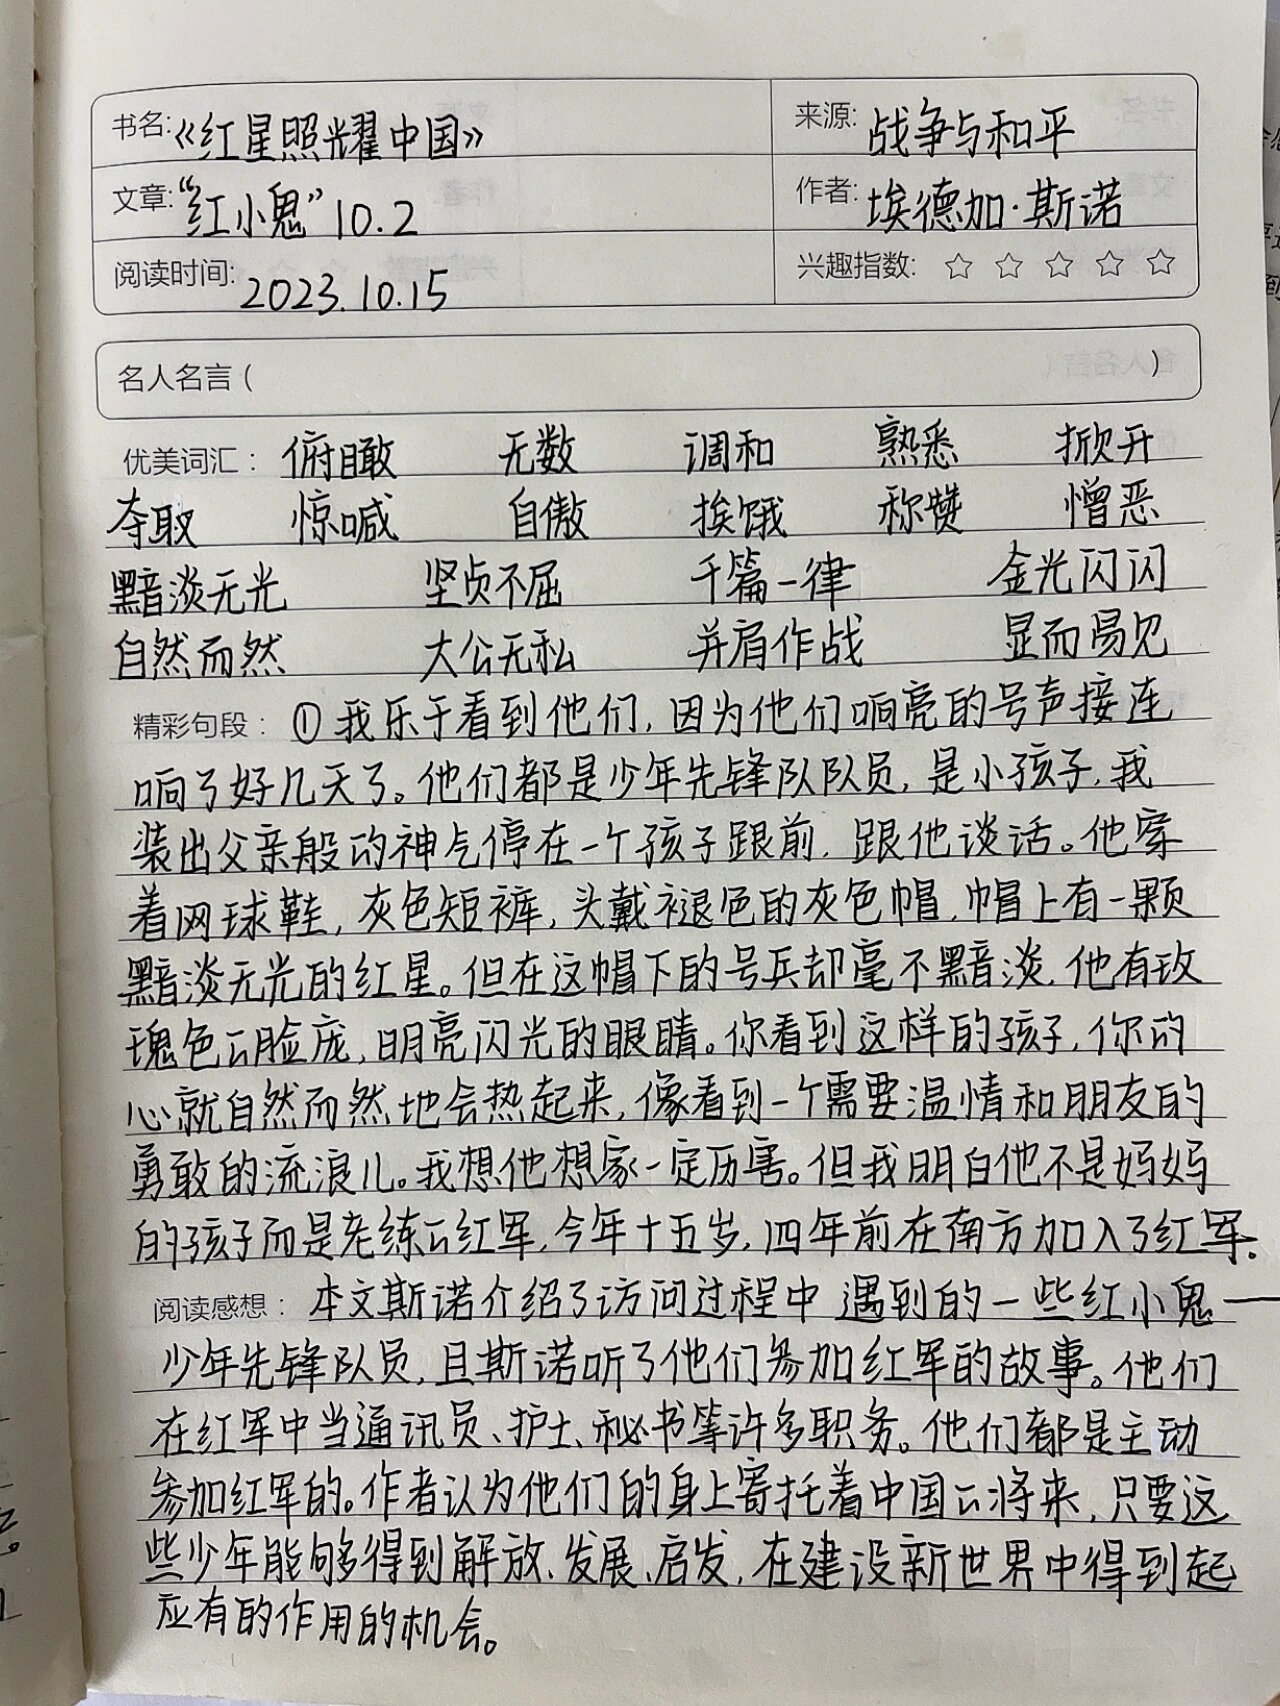 书名:《红星照耀中国》 来源: 战争与和平
文章:“红小鬼”10.2 作者: 埃德加·斯诺
阅读时间: 2023.10.15 兴趣指数: ☆ ☆ ☆ ☆ ☆
名人名言 ( )
优美词汇: 俯瞰 无数 调和 熟悉 掀开
夺取 惊喊 自傲 挨饿 称赞 憎恶
黯淡无光 坚贞不屈 千篇一律 金光闪闪
自然而然 大公无私 并肩作战 显而易见
精彩句段: ①我乐于看到他们,因为他们响亮的号声接连
响了好几天了。他们都是少年先锋队队员,是小孩子,我
装出父亲般的神气停在一个孩子跟前,跟他谈话。他穿
着网球鞋,灰色短裤,头戴褪色的灰色帽,帽上有一颗
黯淡无光的红星。但在这帽下的号兵却毫不黯淡,他有玫
瑰色的脸庞,明亮闪光的眼睛。你看到这样的孩子,你的
心就自然而然地会热起来,像看到一个需要温情和朋友的
勇敢的流浪儿。我想他想家一定厉害。但我明白他不是妈妈
的孩子而是老练的红军,今年十五岁,四年前在南方加入了红军.
阅读感想: 本文斯诺介绍了访问过程中遇到的一些红小鬼——
少年先锋队员,且斯诺听了他们参加红军的故事。他们
在红军中当通讯员、护士、秘书等许多职务。他们都是主动
参加红军的。作者认为他们的身上寄托着中国的将来,只要这
些少年能够得到解放、发展、启发,在建设新世界中得到起
应有的作用的机会。